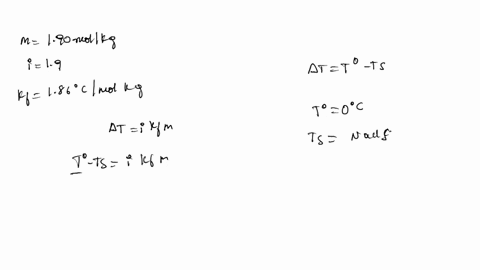 m = 1.90 mol/kg
i = 1.9
Kf = 1.86°C/mol kg
ΔT = i Kf m
T° - Ts = i Kf m
ΔT = T° - Ts
T° = 0°C
Ts =